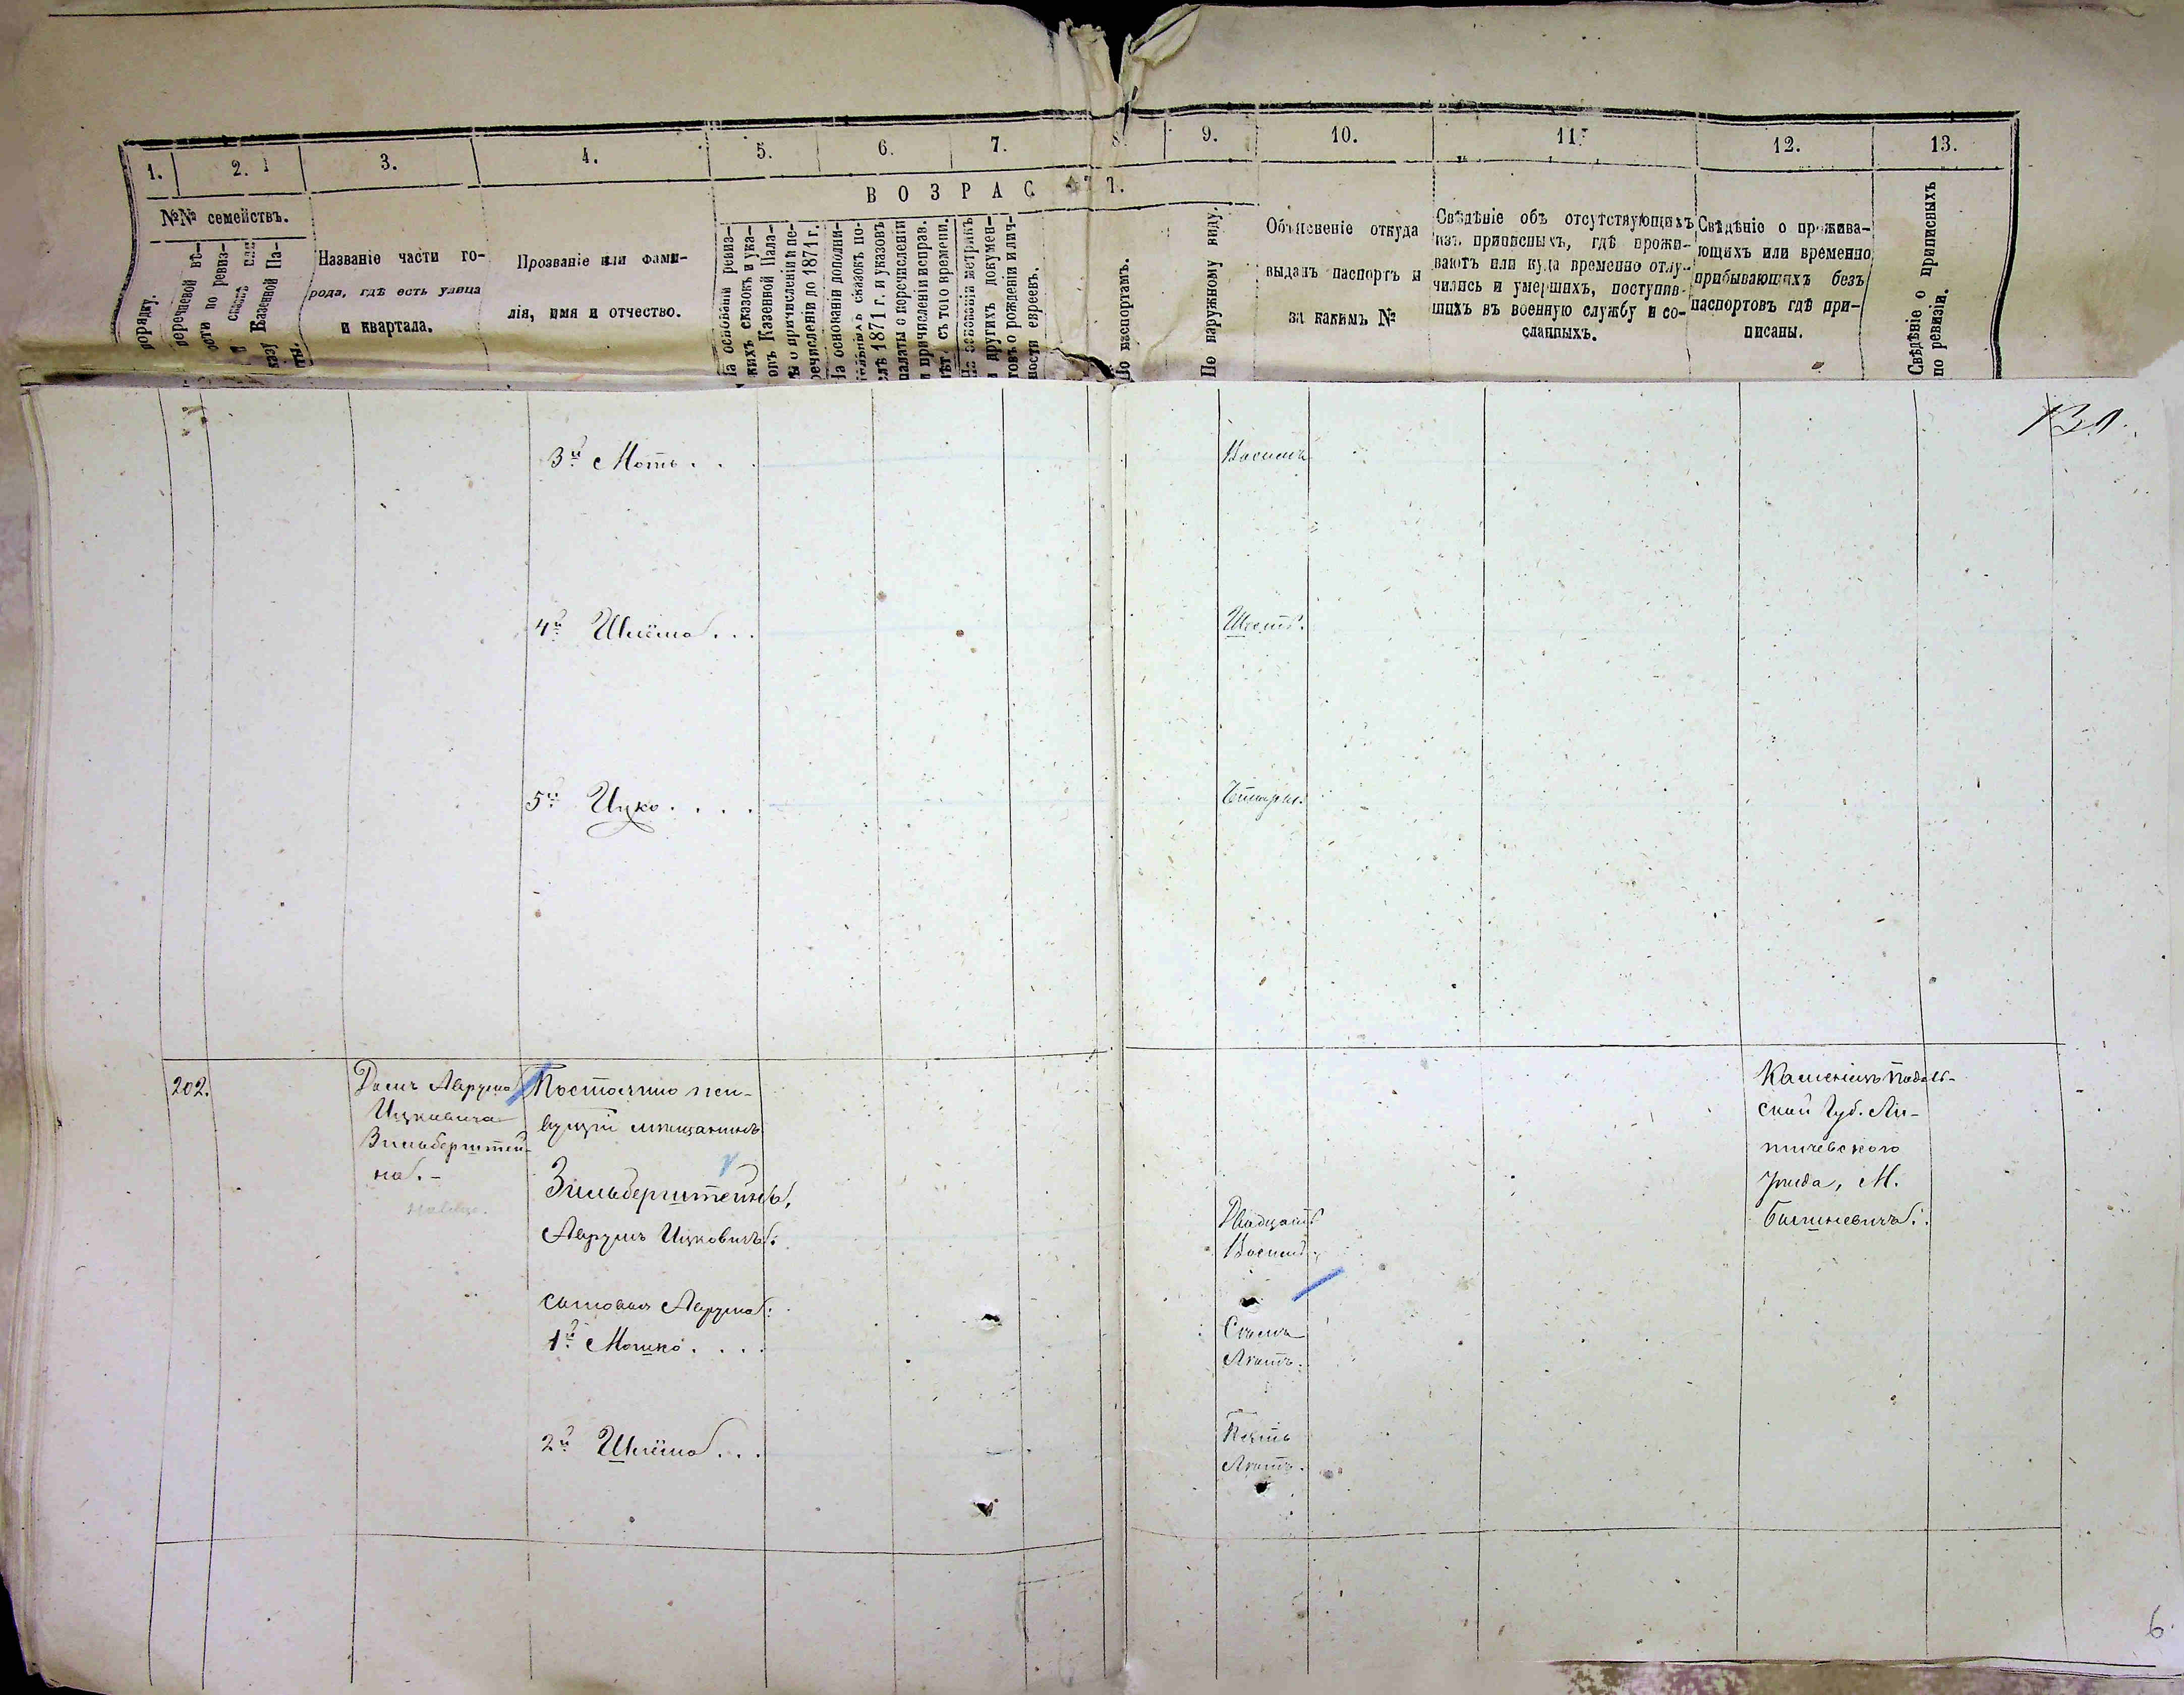 1.
2.
3.
4.
5.
6.
7.
8.
9.
10.
11.
12.
13.
ВОЗРАСТЪ.
№№ семействъ.
порядку.
перечневой вѣ-
Казенной Па-
Названіе части го-
рода, гдѣ есть улица
и квартала.
Прозваніе или фами-
лія, имя и отчество.
На основаніи ревиз-
скихъ сказокъ и ука-
зовъ Казенной Пала-
ты о причисленіи и пе-
речисленіи до 1871 г.
На основаніи дополни-
тельныхъ сказокъ по-
слѣ 1871 г. и указовъ
палаты о перечисленіи
и причисленіи исправ.
лѣт. съ того времени.
На основаніи метрикъ
и другихъ докумен-
товъ о рожденіи и лич-
ности евреевъ.
По паспортамъ.
По наружному виду.
Объясненіе откуда
выданъ паспортъ и
за какимъ №
Свѣдѣніе объ отсутствующихъ
изъ приписныхъ, гдѣ прожи-
ваютъ или куда временно отлу-
чились и умершихъ, поступив-
шихъ въ военную службу и со-
сланныхъ.
Свѣдѣніе о прожива-
ющихъ или временно
прибывающихъ безъ
паспортовъ гдѣ при-
писаны.
Свѣдѣніе о приписныхъ
по ревизіи.
3й Моть . . .
Восемь
4й Шлёма . . .
Шесть.
5й Ицко . . . .
Четыре.
202.
Домъ Аврума
Ицковича
Зильберштей-
на. -
Постоянно жи-
вущій мѣщанинъ
Зильберштейнъ,
Аврумъ Ицковичъ:
Двадцать
Восемь.
Каменецъ Подоль-
ской Губ. Ли-
тичевского
уѣзда, М.
сыновья Аврума:
1й Мошко . . . .
Семь
Лѣтъ.
2й Шлёма . . .
Пять
Лѣтъ.
6